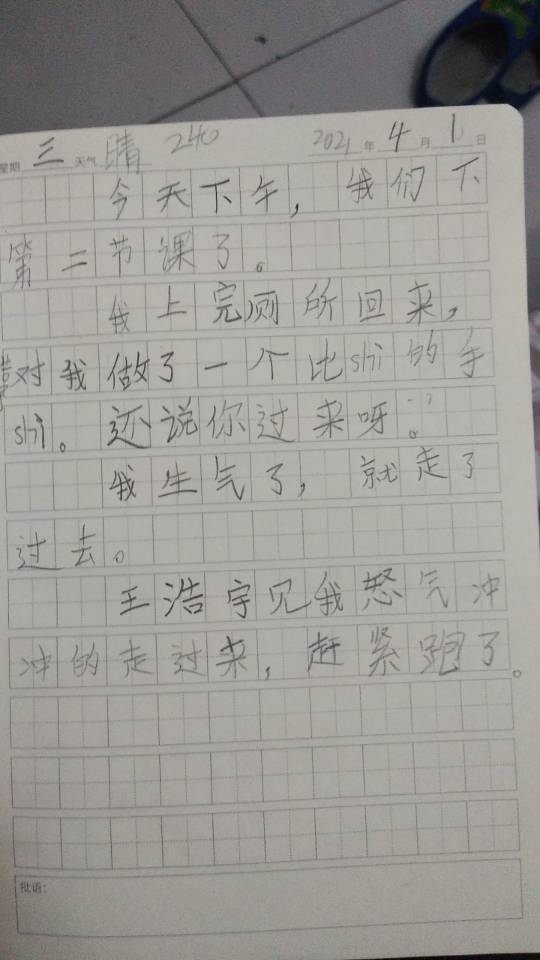 星期 三 天气 晴 240 2021 年 4 月 1 日
今天下午，我们下
第二节课了。
我上完厕所回来，
对我做了一个比shi的手
shi。还说你过来呀。
我生气了，就走了
过去。
王浩宇见我怒气冲
冲的走过来，赶紧跑了。
批语：